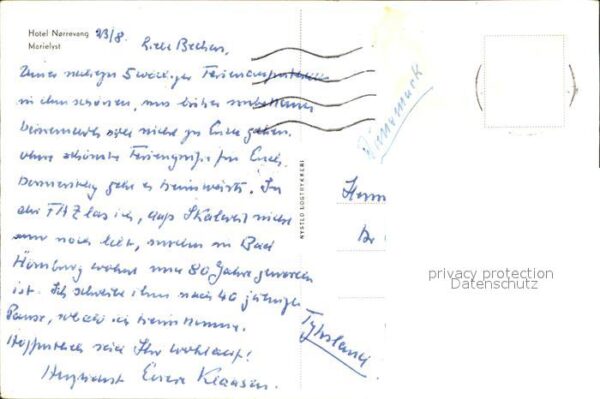 Hotel Nørrevang 23/8.
Marielyst
Liebe
Unser 5
in dem schönen, uns bisher unbekannten
Dänemark soll nicht zu Ende gehen,
ohne schönste Feriengrüße für Euch.
Donnerstag geht es heimwärts. In
der FAZ las ich, daß nicht
nur noch lebt, sondern in Bad
Homburg wohnt und 80 Jahre geworden
ist. Ich schreibe ihm nach 40 jähriger
Pause, sobald ich heimkomme.
Hoffentlich seid Ihr wohlauf!
Herzlichst Klaasen.
NYSTED LOGTRYKKERI
Dänemark
Herrn
Tyskland
privacy protection
Datenschutz